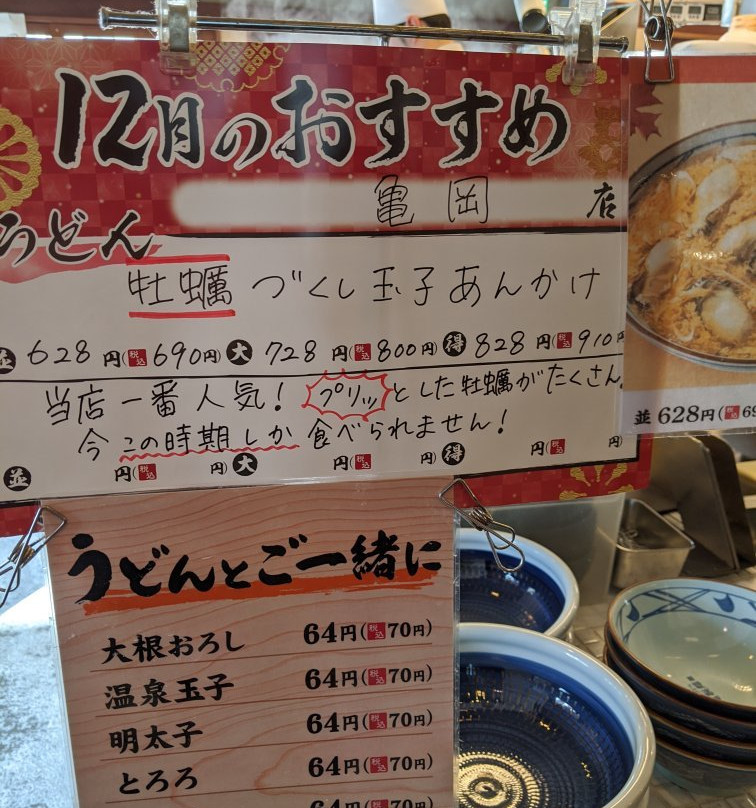 12月のおすすめ
亀岡 店
うどん
牡蠣づくし玉子あんかけ
並 628円(税込690円) 大 728円(税込800円) 得 828円(税込910円
当店一番人気! プリッとした牡蠣がたくさん。
今この時期しか食べられません!
並 円(税込 円) 大 円(税込 円) 得 円(税込 円)
並 628円(税込69
うどんとご一緒に
大根おろし 64円(税込70円)
温泉玉子 64円(税込70円)
明太子 64円(税込70円)
とろろ 64円(税込70円)
64円(税込70円)